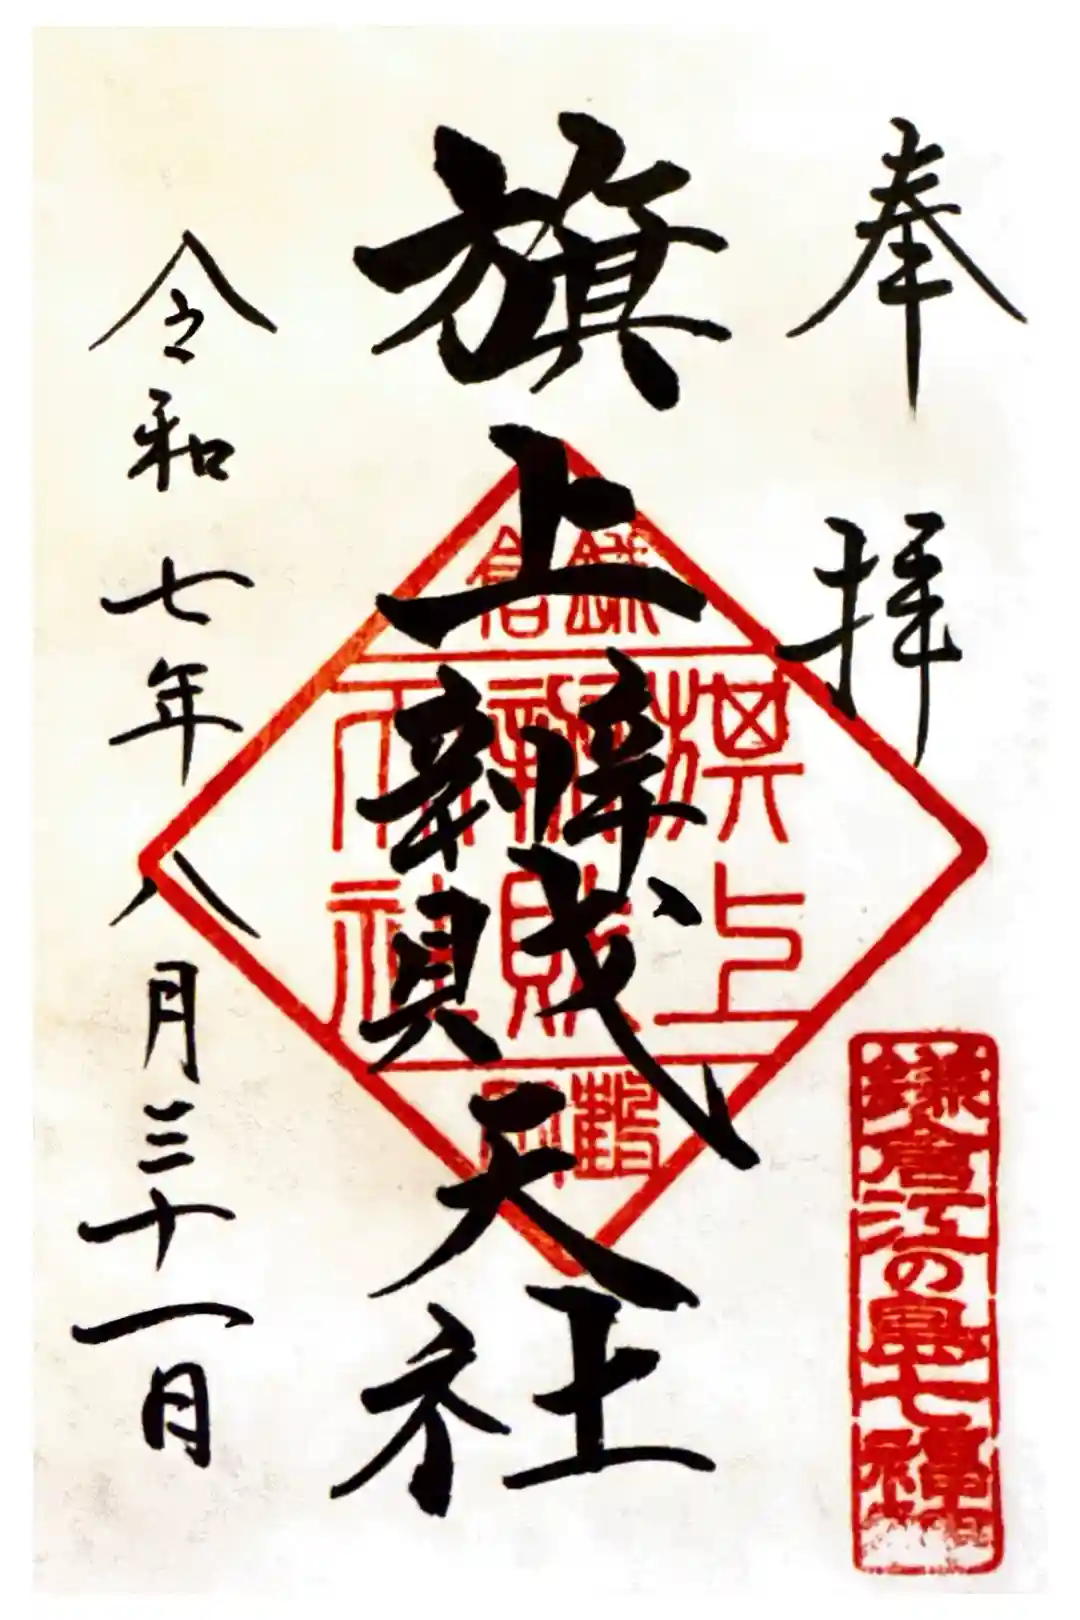 奉拝
鎌倉江の島七福神
旗上辨財天社
鎌倉
旗上
辨財
天社
令和七年八月三十一日